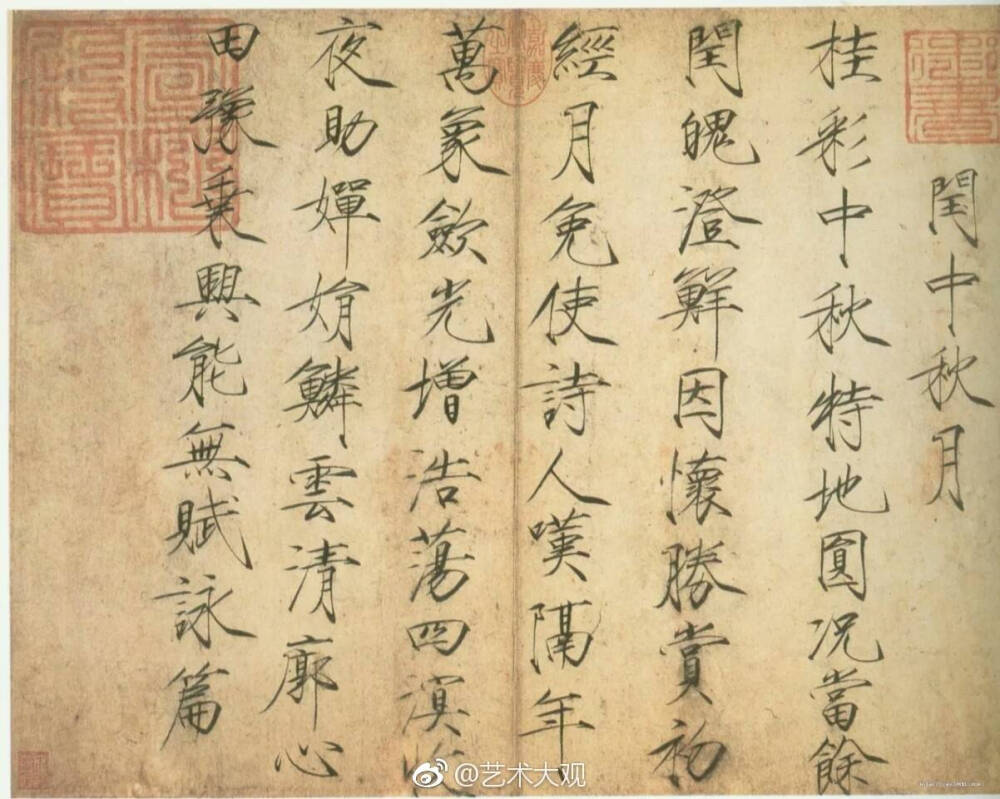 閏中秋月
桂彩中秋特地圓况當餘
閏魄澄鮮因懷勝賞初
經月免使詩人嘆隔年
萬象歛光增浩蕩四溟收
夜助嬋娟鱗雲清廓心
田豫乗興能無賦詠篇
@艺术大观